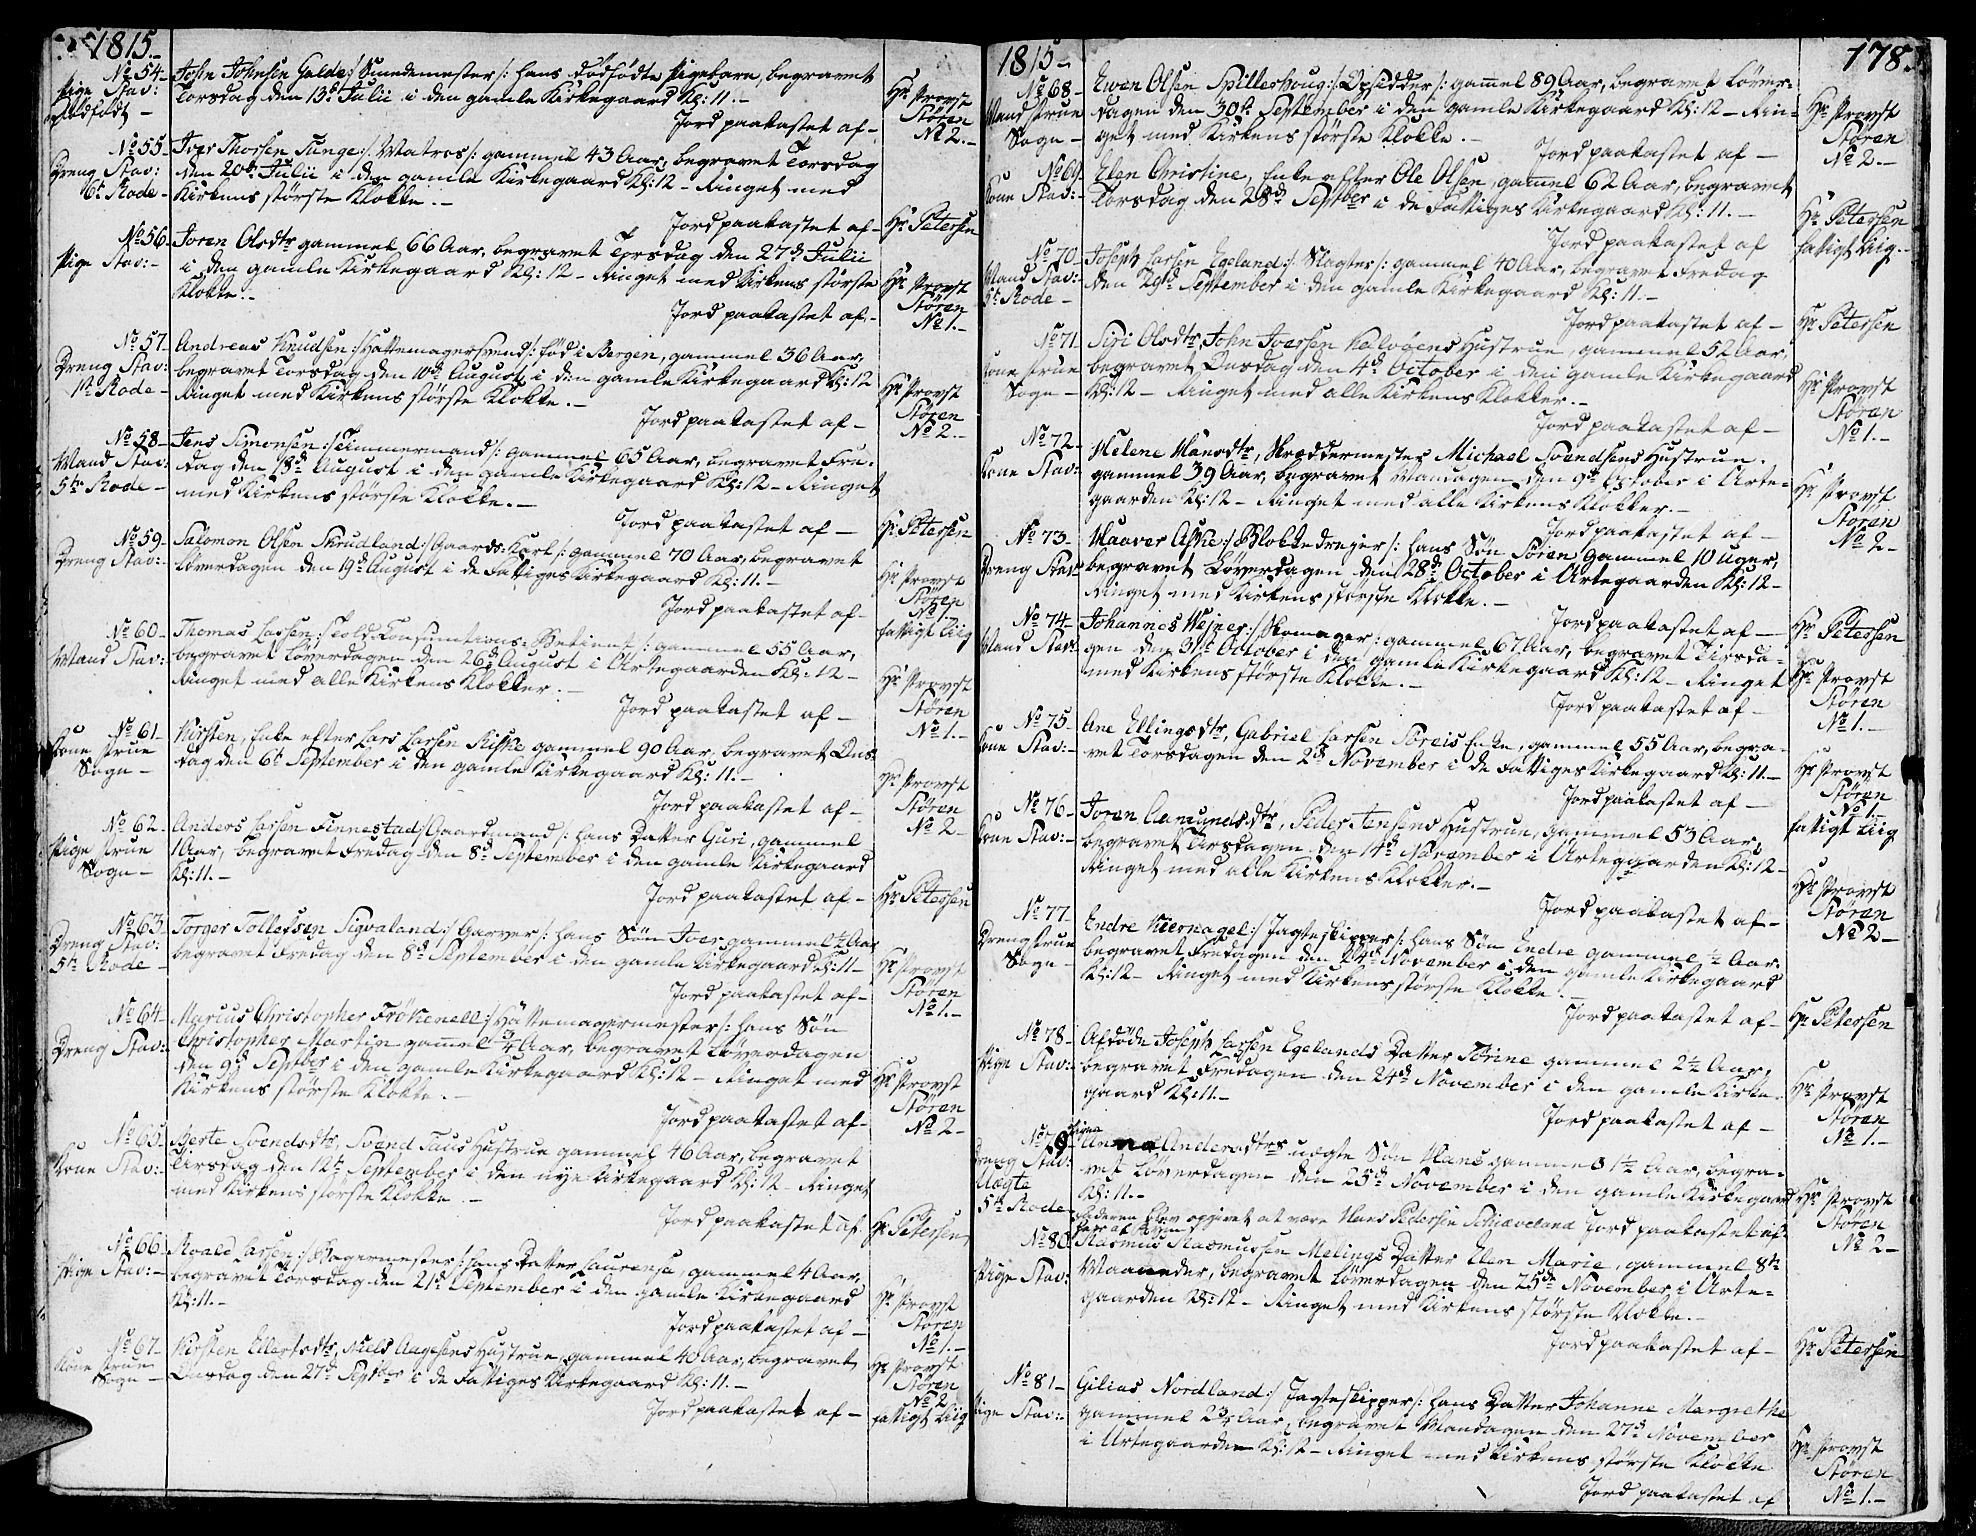 1815.
No 54-
Pige Stav:
Dødfødt -
John Johnsen Galde /: Smedemester :/ hans dødfødte Pigebarn, begravet
Torsdag den 13de Julii i den gamle Kirkegaard Kl: 11.-
Jord paakastet af-
Hr Provst
Støren
No 2.-
No 55-
Dreng Stav:
6te Rode-
Iver Thorsen Tunge /: Matros :/ gammel 43 Aar, begravet Torsdag
den 20de Julii i den gamle Kirkegaard Kl: 12 - Ringet med
Kirkens største Klokke.-
Jord paakastet af-
Hr Petersen
No 56-
Pige Stav:-
Joren Olsdtr gammel 66 Aar, begravet Torsdag den 27de Julii
i den gamle Kirkegaard Kl: 12 - Ringet med Kirkens største
Klokke.-
Jord paakastet af-
Hr Provst
Støren
No 1.-
No 57-
Dreng Stav:
1te Rode-
Andreas Knudsen /: Hattemagersvend :/ fød i Bergen, gammel 36 Aar,
begravet Torsdag den 10de August i den gamle Kirkegaard Kl: 12
Ringet med Kirkens største Klokke.-
Jord paakastet af-
Hr Provst
Støren
No 2.-
No 58-
Mand Stav:
5te Rode-
Jens Simonsen /: Tømmermand :/ gammel 65 Aar, begravet Fre-
dag den 18de August i den gamle Kirkegaard Kl: 12 - Ringet
med Kirkens største Klokke.-
Jord paakastet af-
Hr Petersen
No 59-
Dreng Stav:-
Salomon Olsen Skrudland /: Gaards-Karl :/ gammel 70 Aar, begravet
Løverdagen den 19de August i de Fattiges Kirkegaard Kl: 11.-
Jord paakastet af-
Hr Provst
Støren
No 1.-
fattigt Liig
No 60-
Mand Stav:
Thomas Larsen /: Told Consumtions-Betient :/ gammel 55 Aar,
begravet Løverdagen den 26de August i Urtegaarden Kl: 12-
Ringet med alle Kirkens Klokker.-
Jord paakastet af-
Hr Provst
Støren
No 1.-
No 61-
Kone Frue
Sogn-
Kirsten, Enke efter Lars Larsen Kiske gammel 90 Aar, begravet Ons-
dag den 6te September i den gamle Kirkegaard Kl: 11.-
Jord paakastet af-
Hr Provst
Støren
No 2-
No 62-
Pige Frue
Sogn-
Anders Larsen Finnestad /: Gaardmand :/ hans Datter Guri, gammel
1 Aar, begravet Fredag den 8de September i den gamle Kirkegaard
Kl: 11.-
Jord paakastet af-
Hr Petersen
No 63-
Dreng Stav:
5te Rode-
Torger Tollefsen Sigvaland /: Garver :/ hans Søn Iver, gammel ½ Aar
begravet Fredag den 8de September i den gamle Kirkegaard Kl: 11-
Jord paakastet af-
Hr Provst
Støren
No 1.-
No 64-
Dreng Stav:
Marcus Christopher Frökenell /: Hattemagermester :/ hans Søn
Christopher Martin gammel ¾ Aar, begravet Løverdagen
den 9de Septbr i den gamle Kirkegaard Kl: 12 - Ringet med
Kirkens største Klokke.-
Jord paakastet af-
Hr Provst
Støren
No 2-
No 65-
Kone Stav:
Berte Svendsdtr, Svend Taus Hustrue gammel 46 Aar, begravet
Tirsdag den 12te September i den nye Kirkegaard Kl: 12 - Ringet
med Kirkens største Klokke.-
Jord paakastet af-
Hr Petersen
No 66-
Pige Stav:-
Roald Larsen /: Bagermester :/ hans Datter Laurense, gammel 4 Aar,
begravet Torsdag den 21de September i den gamle Kirkegaard
Kl: 11.-
Jord paakastet af-
Hr Provst
Støren
No 1.-
No 67-
Kone Frue
Sogn-
Kirsten Eilertsdtr, Niels Aagesens Hustrue, gammel 40 Aar, begravet
Onsdag den 27de Septber i de Fattiges Kirkegaard Kl: 11.-
Jord paakastet af-
Hr Provst
Støren
No 2
fattigt Liig
1815-
178.
No 68-
Mand Frue
Sogn-
Ewen Olsen Spillerhoug /: Opsidder :/ gammel 89 Aar, begravet Løver-
dagen den 30te September i den gamle Kirkegaard Kl: 12 - Rin-
get med Kirkens største Klokke.-
Jord paakastet af-
Hr Provst
Støren
No 2.-
No 69-
Kone Stav:-
Elen Christine, Enke efter Ole Olsen, gammel 62 Aar, begravet
Torsdag den 28de Septber i de Fattiges Kirkegaard Kl: 11.-
Jord paakastet af
Hr Petersen
fattigt Liig.-
No 70-
Mand Stav:
5te Rode-
Joseph Larsen Egeland /: Slagter :/ gammel 40 Aar, begravet Fredag
den 29de September i den gamle Kirkegaard Kl: 11.-
Jord paakastet af-
Hr Petersen
No 71
Kone Frue
Sogn-
Siri Olsdtr, John Ivarsen Kalvøens Hustrue, gammel 52 Aar,
begravet Onsdag den 4de October i den gamle Kirkegaard
Kl: 12 - Ringet med alle Kirkens Klokker.-
Jord paakastet af-
Hr Provst
Støren
No 1.-
No 72-
Kone Stav:
Helene Hansdtr, Skreddermester Michael Svendsens Hustrue,
gammel 39 Aar, begravet Mandagen den 9de October i Urte-
gaarden Kl: 12 - Ringet med alle Kirkens Klokker.-
Jord paakastet af-
Hr Provst
Støren
No 2-
No 73-
Dreng Stav:
Haaver Aske /: Blokkedrejer :/ hans Søn Søren gammel 10 uger,
begravet Løverdagen den 28de October i Urtegaarden Kl: 12-
Ringet med Kirkens største Klokke.-
Jord paakastet af-
Hr Petersen
No 74-
Mand Stav:
Johannes Wejner /: Skomager :/ gammel 67 Aar, begravet Tirsda-
gen den 31te October i den gamle Kirkegaard Kl: 12 - Ringet
med Kirkens største Klokke.-
Jord paakastet af-
Hr Provst
Støren
No 1.-
No 75-
Kone Stav:-
Ane Ellingsdtr, Gabriel Larsen Soreis Enke, gammel 55 Aar, begra-
vet Torsdagen den 2de November i de Fattiges Kirkegaard Kl: 11.-
Jord paakastet af-
Hr Provst
Støren
No 1.-
fattigt Liig
No 76-
Kone Stav:-
Joren Aamundsdtr, Peder Jensens Hustrue, gammel 53 Aar,
begravet Tirsdagen den 14de November i Urtegaarden Kl: 12-
Ringet med alle Kirkens Klokker.-
Jord paakastet af-
Hr Provst
Støren
No 2-
No 77-
Dreng Frue
Sogn-
Endre Kiernagel /: Jagteskipper :/ hans Søn Endre gammel ½ Aar,
begravet Fredagen den 24de November i den gamle Kirkegaard
Kl: 12 - Ringet med Kirkens største Klokke.-
Jord paakastet af-
Hr Petersen
No 78-
Pige Stav:
Afdøde Joseph Larsen Egelands Datter Serine gammel 2½ Aar,
begravet Fredagen den 24de November i den gamle Kirke-
gaard Kl: 11.-
Jord paakastet af-
Hr Provst
Støren
No 1.-
No 79-
Dreng Stav:
Uægte
5te Rode-
Anna Andersdtrs uægte Søn Hans gammel 1½ Aar, begra-
vet Løverdagen den 25de November i den gamle Kirkegaard
Kl: 11.-
Faderen blev opgivet at være Hans Pedersen Schiæveland Jord paakastet af-
Hr Provst
Støren
No 2-
No 80
Pige Stav:
Rasmus Rasmussen Melings Datter Elen Marie, gammel 8te
Maaneder, begravet Løverdagen den 25de November i Urte-
gaarden Kl: 12 - Ringet med Kirkens største Klokke.-
Jord paakastet af-
Hr Petersen
No 81-
Pige Stav:
Gilias Nordland /: Jagteskipper :/ hans Datter Johanne Margrethe
gammel 2¾ Aar, begravet Mandagen den 27de November
i Urtegaarden Kl: 12 - Ringet med Kirkens største Klokke
Jord paakastet af
Hr Provst
Støren
No 1.-